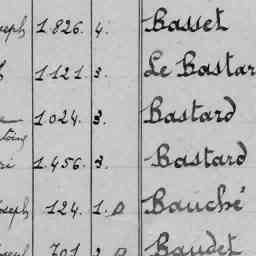 seph 1.826. 4. Basset
1.121. 3. Le Bastar
1.024. 3. Bastard
1.456. 3. Bastard
oseph 124. 1. Bauché
701 Baudet